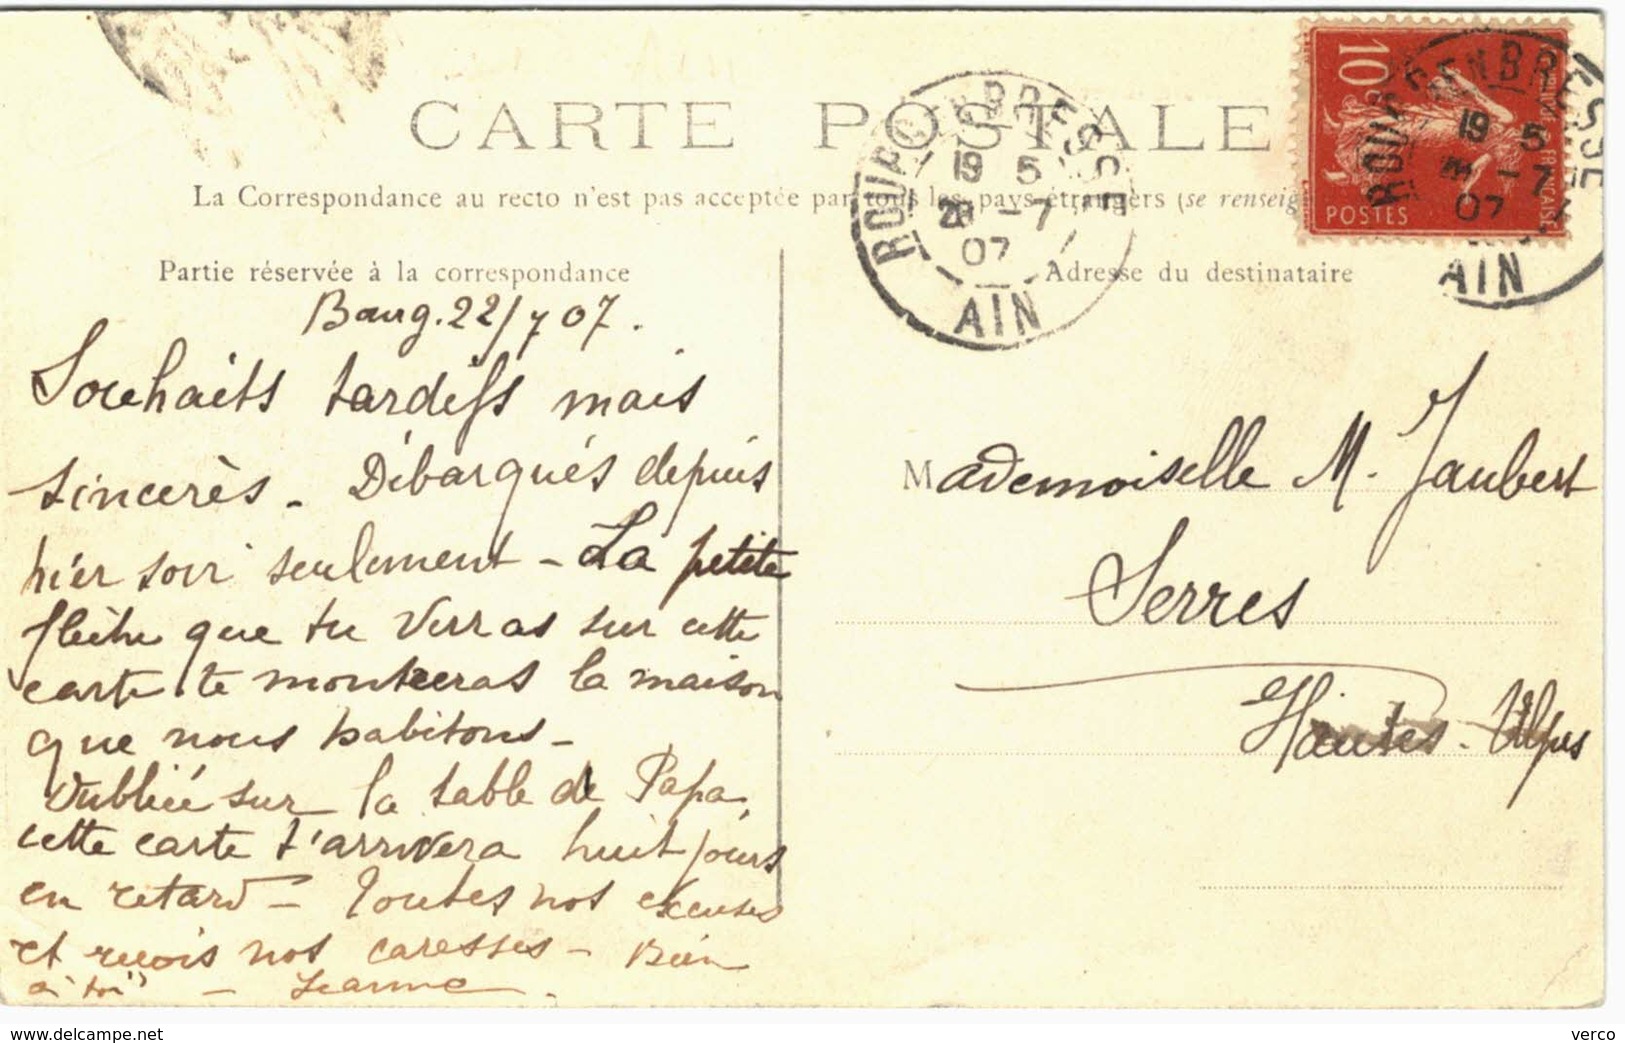 CARTE POSTALE
La Correspondance au recto n'est pas acceptée par tous les pays étrangers (se renseig
Partie réservée à la correspondance
Bourg. 22/7 07.
Souhaits tardifs mais
sincerès - Débarqués depuis
hier soir seulement - La petite
flêche que tu verras sur cette
carte te montreras la maison
que nous habitons -
Oubliée sur la table de Papa
cette carte t'arrivera huit jours
en retard - Toutes nos excuses
et reçois nos caresses - Bien
à toi - Jeanne
Adresse du destinataire
Mademoiselle M. Jaubert
Serres
Hautes-Alpes
BOURG-EN-BRESSE
19 5
-7
07
AIN
10
POSTES
BOURG-EN-BRESSE
19 5
-7
07
AIN
verco